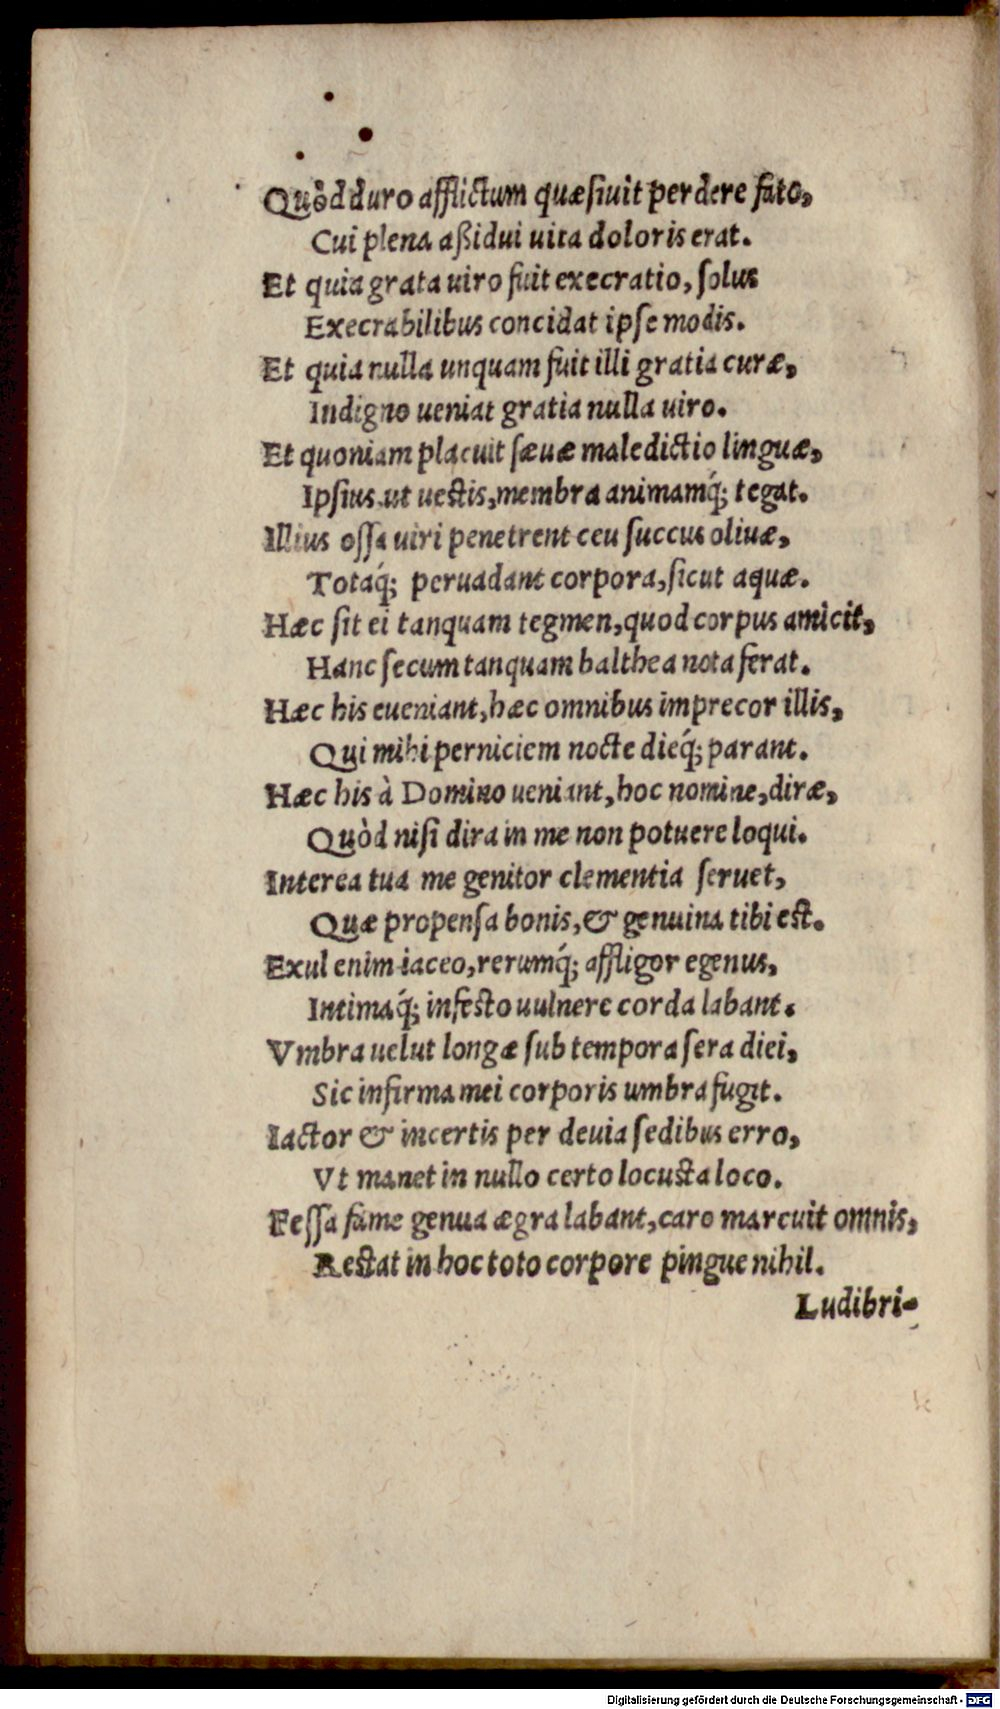 Quòd duro afflictum quæsiuit perdere fato,
Cui plena aßidui uita doloris erat.
Et quia grata uiro fuit execratio, solus
Execrabilibus concidat ipse modis.
Et quia nulla unquam fuit illi gratia curæ,
Indigno ueniat gratia nulla uiro.
Et quoniam placuit sæuæ maledictio linguæ,
Ipsius ut uestis, membra animamq́; tegat.
Illius ossa uiri penetrent ceu succus oliuæ,
Totaq́; peruadant corpora, sicut aquæ.
Hæc sit ei tanquam tegmen, quod corpus amicit,
Hanc secum tanquam balthea nota ferat.
Hæc his eueniant, hæc omnibus imprecor illis,
Qui mihi perniciem nocte dieq́; parant.
Hæc his à Domino ueniant, hoc nomine, diræ,
Quòd nisi dira in me non potuere loqui.
Interea tua me genitor clementia seruet,
Quæ propensa bonis, & genuina tibi est.
Exul enim iaceo, rerumq́; affligor egenus,
Intimaq́; infesto uulnere corda labant.
Vmbra uelut longæ sub tempora sera diei,
Sic infirma mei corporis umbra fugit.
Iactor & incertis per deuia sedibus erro,
Vt manet in nullo certo locusta loco.
Fessa fame genua ægra labant, caro marcuit omnis,
Restat in hoc toto corpore pingue nihil.
Ludibri-
Digitalisierung gefördert durch die Deutsche Forschungsgemeinschaft - DFG